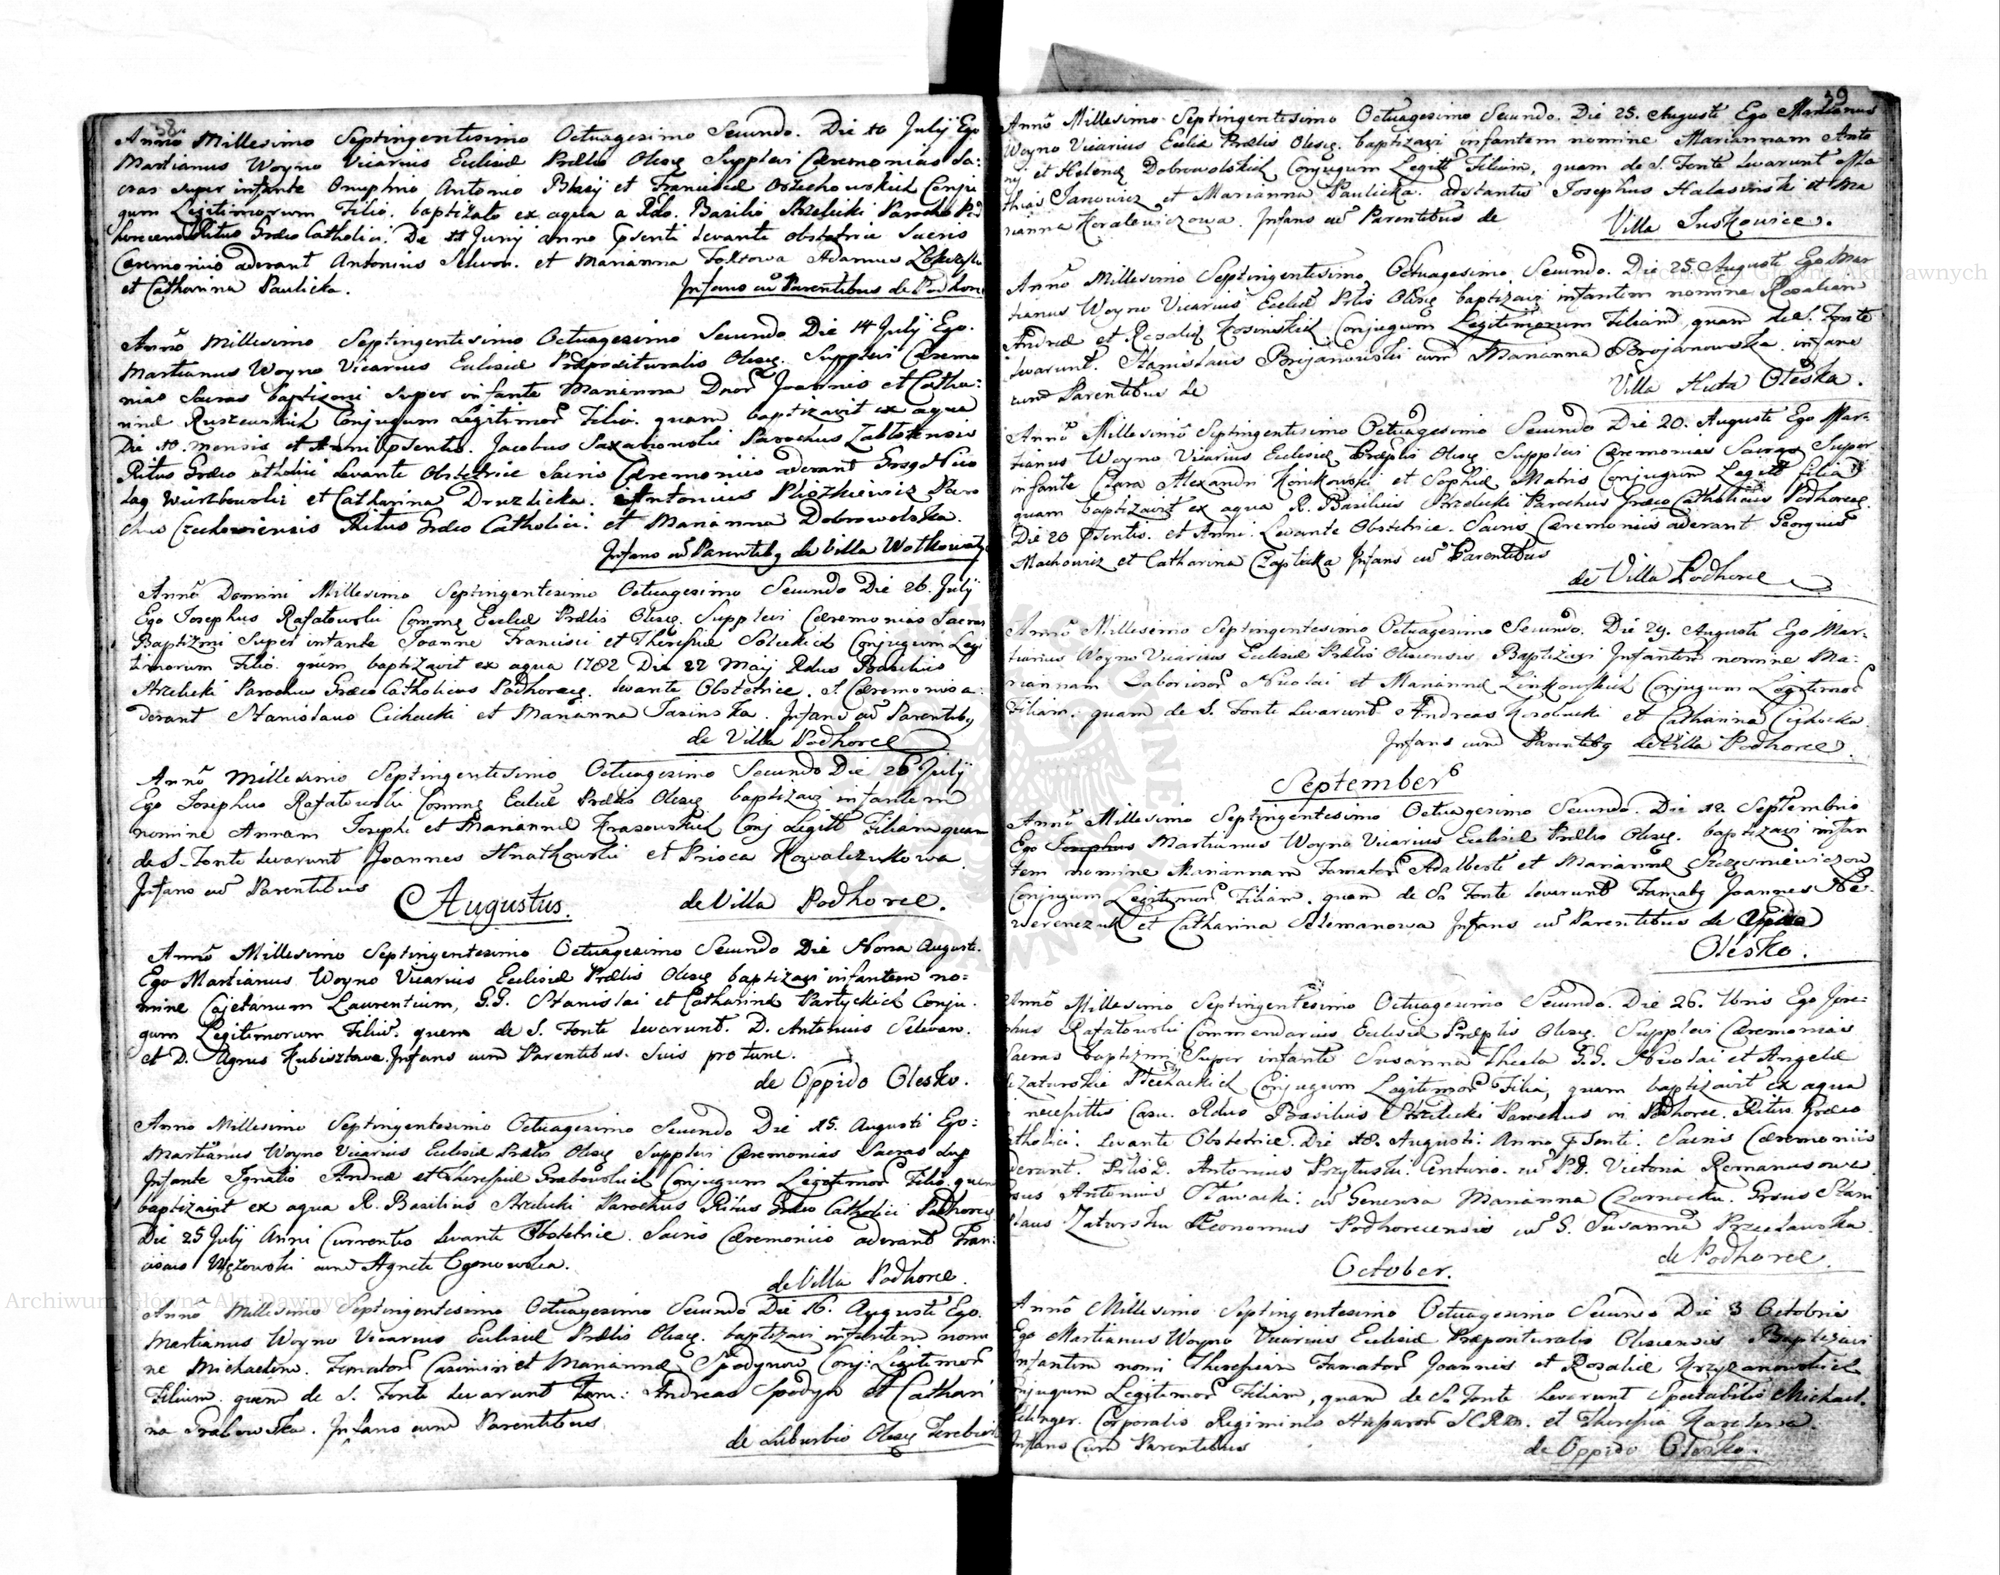 38
Anno Millesimo Septingentesimo Octuagesimo Secundo. Die 10 July Ego
Martianus Woyno Vicarius Eclisiæ Prælis Olesc Supplevi Cæremonias Sa-
cras super infante Onuphrio Antonio Blasij et Franciscæ Orzechowskich Conju
gum Legitimorum Filio. baptizato ex aqua a Rdo. Basilio Strzelicki Parocho Pod
horecens Ritus Græco Catholici. Die 11 Junij anno Psenti levante obstetrice Sacris
Cæremoniis aderant Antonius Selwan. et Marianna Adamus
et Catharina Paulicka. Infans cu Parentibus de Podhorc
Anno Millesimo Septingentesimo Octuagesimo Secundo Die 14 July Ego.
Martianus Woyno Vicarius Eclisiæ Præposituralis Olesc. Supplevi Cæremo
nias Sacras baptismi super infante Marianna Dnor Joannis et Catha:
rinæ Ruszewskich Conjugum Legitimor Filia. quam baptizavit ex aqua
Die 10 mensis et Anni Psentis. Jacobus Parochus
Ritus Græco atholici Levante Obstetrice Sacris Cæremoniis aderant Grsg Nico
lag et Catharina Druzlicka. Antonius Paro
chus Ritus Græco Catholici. et Marianna Dobrowolska.
Infans cu Parentibg de Villa Wolkowatz
Anno Domini Millesimo Septingentesimo Octuagesimo Secundo Die 26. July
Ego Josephus Rafalowski Comme Eclisiæ Prælis Olesc. Supplevi Cæremonias Sacras
Baptizmi Super infante Joanne Francisci et Theresiæ Solickich Conjugum Legi
timorum Filio. quem baptizavit ex aqua 1782 Die 22 Maij Rdus Basilius
Strzelicki Parochus Græco Catholicus Podhorecg. levante Obstetrice. S. Cæremoniis a:
derant Stanislaus Cichocki et Marianna Jasinska. Infans cu Parentibg
de Villa Podhorce
Anno Millesimo Septingentesimo Octuagesimo Secundo Die 26 July
Ego Josephus Rafalowski Comme Eclisiæ Prælis Olesc baptizavi infantem
nomine Annam Josephi et Mariannæ Krasowskich Conj Legitt Filiam quam
de S. Fonte levarunt Joannes Hnatkowski et Prisca Kowalczukowa
Infans cu Parentibus
de Villa Podhorce.
Augustus.
Anno Millesimo Septingentesimo Octuagesimo Secundo Die Nona Augusti.
Ego Martianus Woyno Vicarius Eclisiæ Prælis Olesc baptizavi infantem no=
mine Cajetanum Laurentium, G.G. Stanislai et Catharinæ Partyckich Conju.
gum Legitimorum Filiu. quem de S. Fonte levarunt. D. Antonius Selwan.
et D. Agnes Kubisztowa. Infans cum Parentibus. Suis pro tunc.
de Oppido Olesko.
Anno Millesimo Septingentesimo Octuagesimo Secundo Die 15. Augusti Ego:
Martianus Woyno Vicarius Eclisiæ Prælis Olesc Supplevi Cæremonias Sacras Sup
Infante Ignatio Andreæ et Theresiæ Grabowskich Conjugum Legitimor Filio. quem
baptizavit ex aqua R. Basilius Strzelicki Parochus Ritus Græco Catholici Podhorecg
Die 25 July Anni Currentis levante Obstetrice. Sacris Cæremoniis aderant Fran:
ciscus Węzowski cum Agnete Cygonowska.
de Villa Podhorce.
Anno Millesimo Septingentesimo Octuagesimo Secundo Die 16. Augusti Ego.
Martianus Woyno Vicarius Eclisiæ Prælis Olesc. baptizavi infantem nomi
ne Michaelem. Famator Casimiri et Mariannæ Spodynow Conj: Legitimor
Filium. quem de S. Fonte levarunt Fam: Andreas Spodyn et Cathari
na Grabowska. Infans cum Parentibus
de Suburbio Olesc
39
Anno Millesimo Septingentesimo Octuagesimo Secundo. Die 25. Augusti Ego Martianus
Woyno Vicarius Eclisiæ Prælis Olesc. baptizavi infantem nomine Mariannam Anto
nij et Helenæ Dobrowolskich Conjugum Legitt Filiam, quam de S. Fonte levarunt Ma
thias Janowicz et Marianna Paulicka. adstantes Josephus Halasinski et Ma
rianna Koralewiczowa. Infans cu Parentibus de Villa Juskowice.
Anno Millesimo Septingentesimo Octuagesimo Secundo. Die 25. Augusti Ego Mar
tianus Woyno Vicarius Eclisiæ Prælis Olesc baptizavi infantem nomine Rosaliam
Andreæ et Rosaliæ Kosinskich Conjugum Legitimorum Filiam quam de S. Fonte
levarunt. Stanislaus Brojanowski cum Marianna Brojanowska. infans
cum Parentibus de Villa Huta Oleska.
Anno Millesimo Septingentesimo Octuagesimo Secundo Die 20. Augusti Ego Mar-
tianus Woyno Vicarius Eclisiæ Præplis Olesc Supplevi Cæremonias Sacras Super
infante Clara Alexandri Konikowski et Sophiæ Matris Conjugum Legitt filia
quam baptizavit ex aqua R. Basilius Strzelicki Parochus Græco Catholicus Podhorecg.
Die 20 Psentis. et Anni. Levante Obstetrice. Sacris Cæremoniis aderant Georgius
Machowicz et Catharina Czaplicka Infans cu Parentibus
de Villa Podhorce
Anno Millesimo Septingentesimo Octuagesimo Secundo. Die 29. Augusti Ego Mar-
tianus Woyno Vicarius Eclisiæ Prælis Olescensis Baptizavi Infantem nomine Ma-
riannam Laboriosor Nicolai et Mariannæ Zinkowskich Conjugum Legitimor
Filiam. quam de S. Fonte Levarunt Andreas et Catharina Cichocka.
Infans cum Parentibg de Villa Podhorce.
September
Anno Millesimo Septingentesimo Octuagesimo Secundo. Die 12. Septembris
Ego Josephus Martianus Woyno Vicarius Eclisiæ Prælis Olesc. baptizavi infan
tem nomine Mariannam Famator Adalberti et Mariannæ
Conjugum Legitimor Filiam. quam de S. Fonte levarunt Famatg Joannes Ne-
werenczuk et Catharina Selemanowa Infans cu Parentibus de Oppido
Olesko.
Anno Millesimo Septingentesimo Octuagesimo Secundo. Die 26. 7bris Ego Jose-
phus Rafalowski Commendarius Eclisiæ Præplis Olesc. Supplevi Cæremonias
Sacras baptizmi Super infante Susanna Thecla G.G. Nicolai et Angelæ
de Zaturskie Stechackich Conjugum Legitimor Filia, quam baptizavit ex aqua
in necessittis Casu. Rdus Basilius Strzelicki Parochus in Podhorce. Ritus Græco
Catholici. Levante Obstetrice. Die 18. Augusti Anno Psenti. Sacris Cæremoniis
aderant. Antonius Przyłuski Centurio. cu P.D. Victoria
Antonius cu Generosa Marianna Czarnecka. Grsus Stani
slaus Zaturski Æconomus Podhorecensis cu S. Susanna
de Podhorce.
October.
Anno Millesimo Septingentesimo Octuagesimo Secundo Die 3 Octobris
Ego Martianus Woyno Vicarius Eclisiæ Præposituralis Olescensis Baptizavi
Infantem nomi Theresiam Famator Joannis et Rosaliæ Krzyzanowskich
Conjugum Legitimor Filiam, quam de S. Fonte Levarunt Spectabilis Michael
Corporalis Regiminis et Theresia
Infans Cum Parentibus de Oppido Olesko.
Archiwum Główne Akt Dawnych